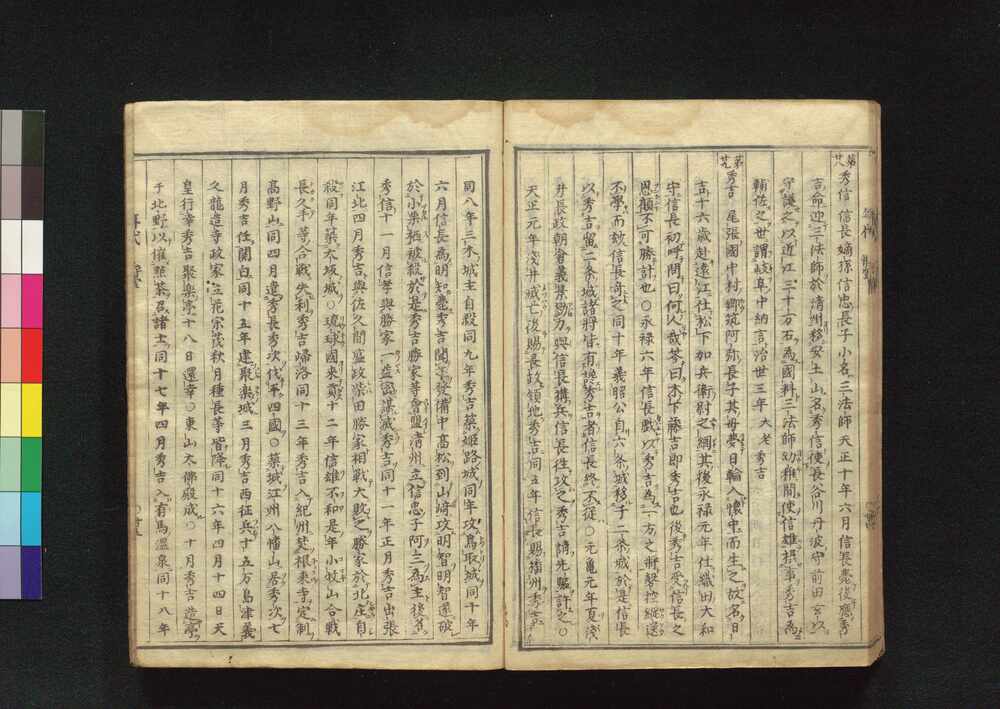 第廿八 秀信 信長嫡孫信忠長子小名三法師天正十年六月信長薨後應秀
吉命迎三法師於清州移安土山名秀信使長谷川丹波守前田玄以
守護之以近江三十万石為國料三法師幼稚間使信雄摂事秀吉為
輔佐之世謂岐阜中納言治世三年 大老秀吉
第廿九 秀吉 尾張國中村郷筑阿弥長子其母夢日輪入懐中而生之故名日
吉十六歳赴遠江仕松下加兵衛尉之綱其後永禄元年仕織田大和
守信長初呼問曰何人哉荅曰木下藤吉即秀吉也後秀吉受信長之
恩顧不可勝計也〇永禄六年信長戯以秀吉為一方之将撃控縦送
不學而效信長奇之同十年義昭公自六条城移于二条城於是信長
以秀吉留二条城諸将皆有換秀吉者信長終不從〇元亀元年夏浅
井長政朝倉義景勠力與信長構兵信長往攻之秀吉請先驅許之〇
天正元年浅井滅亡後賜長政領地秀吉同五年信長賜播州秀吉
同八年三木城主自殺同九年秀吉築姫路城同年攻鳥取城同十年
六月信長為明知薨秀吉聞之發備中高松到山崎攻明智明智遁破
於小栗栖被殺於是秀吉勝家等會盟清州立信忠子阿三為主後名
秀信十一月信孝與勝家一益密謀滅秀吉同十一年正月秀吉出張
江北四月秀吉與佐久間盛政柴田勝家相戰大敗之勝家於北庄自
殺同年築大坂城〇琉球國来貢十二年信雄不和是年小牧山合戰
長久手等合戰失利秀吉帰洛同十三年秀吉入紀州焚根来寺定制
高野山同四月遣秀長秀次伐平四國〇築城江州八幡山居秀次七
月秀吉任関白同十五年建聚楽城三月秀吉西征兵十五万島津義
久龍造寺政家立花宗茂秋月種長等皆降同十六年四月十四日天
皇行幸秀吉聚楽亭十八日還幸〇東山大佛殿成〇十月秀吉造亭
于北野以催點茶召諸士同十七年四月秀吉入有馬温泉同十八年